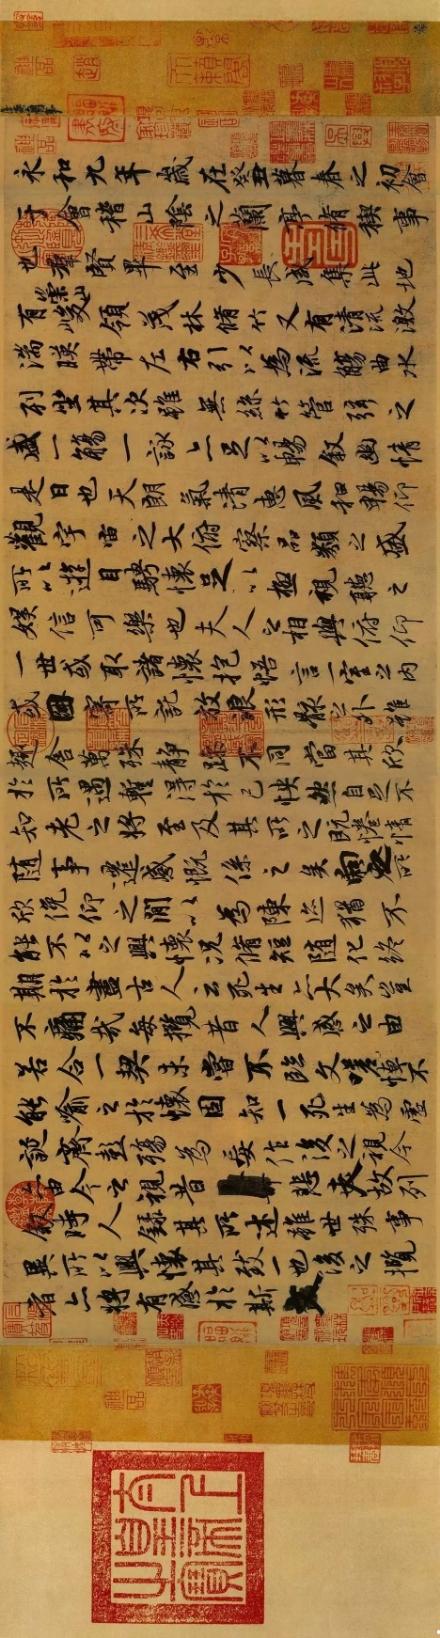 永和九年歲在癸丑暮春之初會
于會稽山陰之蘭亭脩稧事
也羣賢畢至少長咸集此地
有崇山峻領茂林脩竹又有清流激
湍暎帶左右引以為流觴曲水
列坐其次雖無絲竹管弦之
盛一觴一詠亦足以暢叙幽情
是日也天朗氣清惠風和暢仰
觀宇宙之大俯察品類之盛
所以遊目騁懷足以極視聽之
娛信可樂也夫人之相與俯仰
一世或取諸懷抱悟言一室之內
或因寄所託放浪形骸之外雖
趣舍萬殊靜躁不同當其欣
於所遇暫得於己怏然自足不
知老之將至及其所之既惓情
隨事遷感慨係之矣向之所
欣俛仰之閒以為陳迹猶不
能不以之興懷況脩短隨化終
期於盡古人云死生亦大矣豈
不痛哉每攬昔人興感之由
若合一契未嘗不臨文嗟悼不
能喻之於懷固知一死生為虛
誕齊彭殤為妄作後之視今
亦由今之視昔悲夫故列
敘時人錄其所述雖世殊事
異所以興懷其致一也後之攬
者亦將有感於斯文
太上皇帝之寶